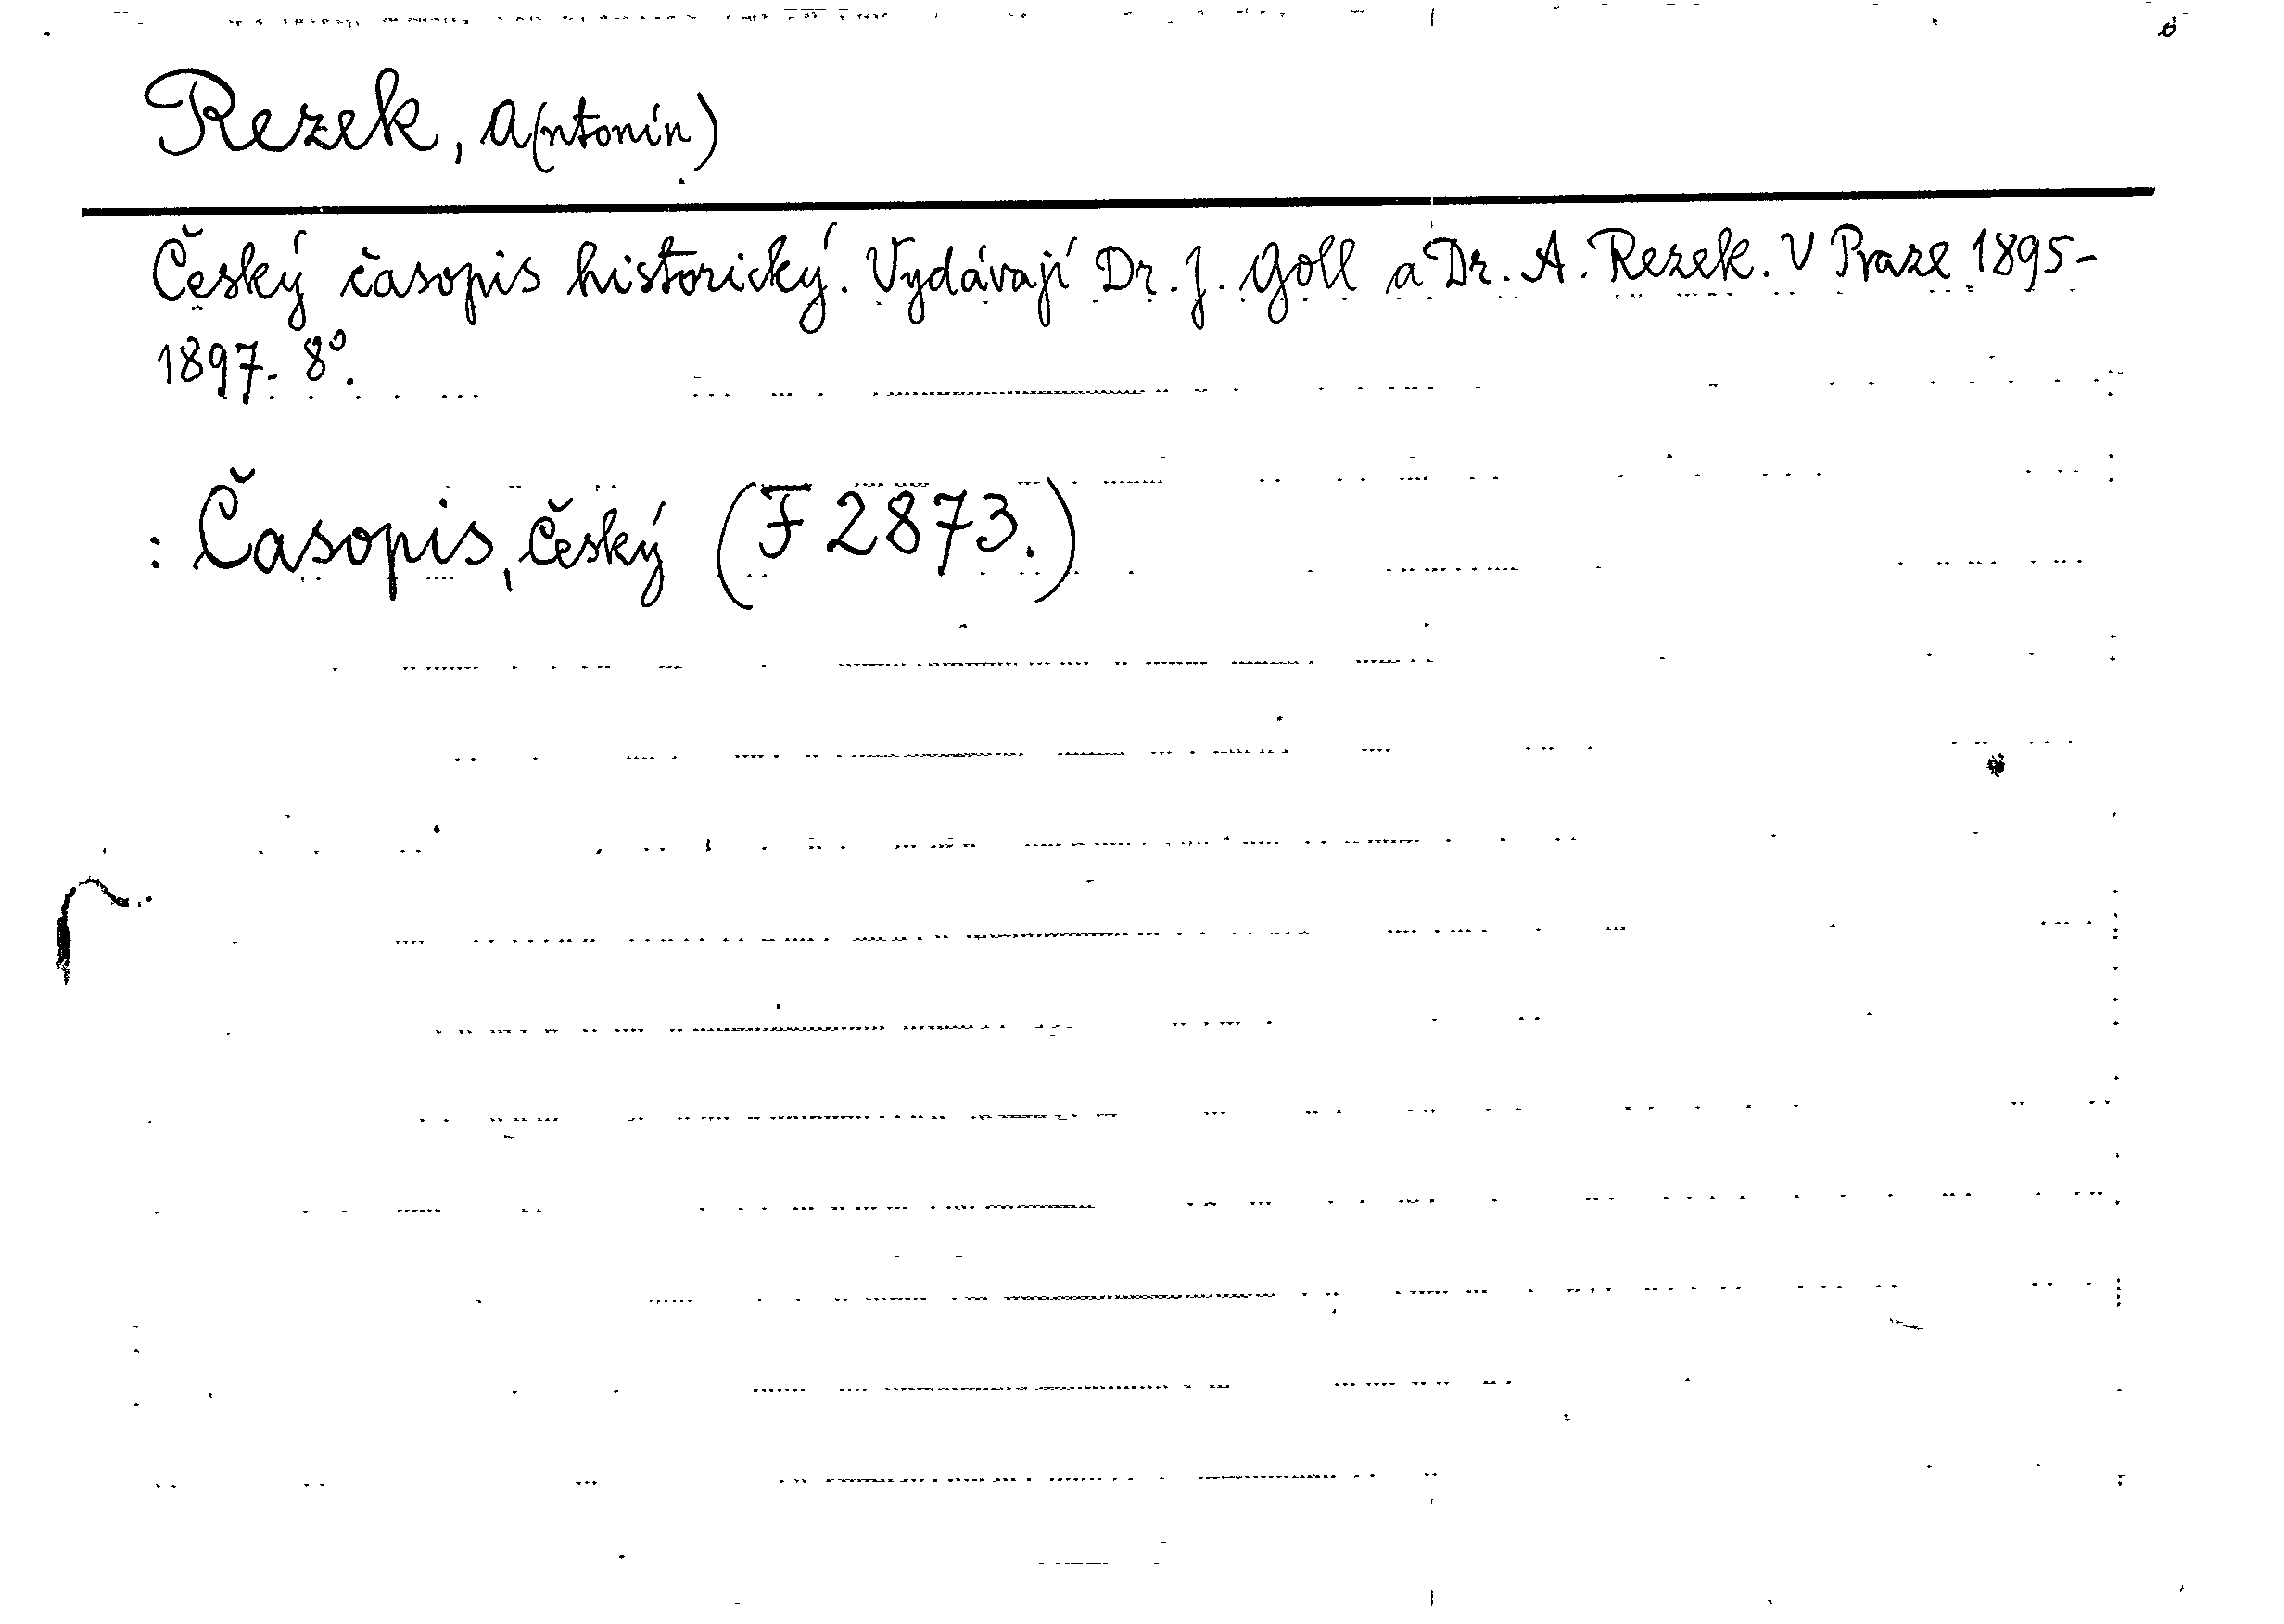 Rezek, A(ntonín)
Český časopis historický. Vydávají Dr. J. Goll a Dr. A. Rezek. V Praze 1895-
1897. 8°.
: Časopis, český (F 2873.)